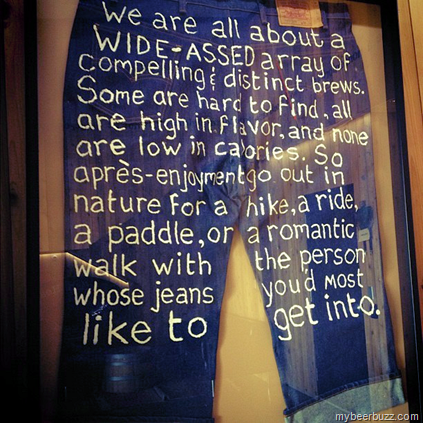 We are all about a
WIDE-ASSED array of
compelling & distinct brews.
Some are hard to find, all
are high in flavor, and none
are low in calories. So
après-enjoyment go out in
nature for a hike, a ride,
a paddle, or a romantic
walk with the person
whose jeans you'd most
like to get into.
mybeerbuzz.com